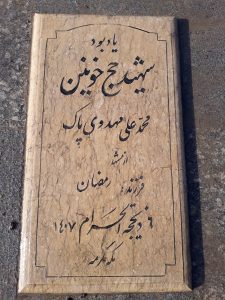 یادبود
شهید حج خونین
محمد علی مهدوی پاک
از مشهد
فرزند: رمضان
۶ ذیحجه الحرام ۱۴۰۷
مکه مکرمه